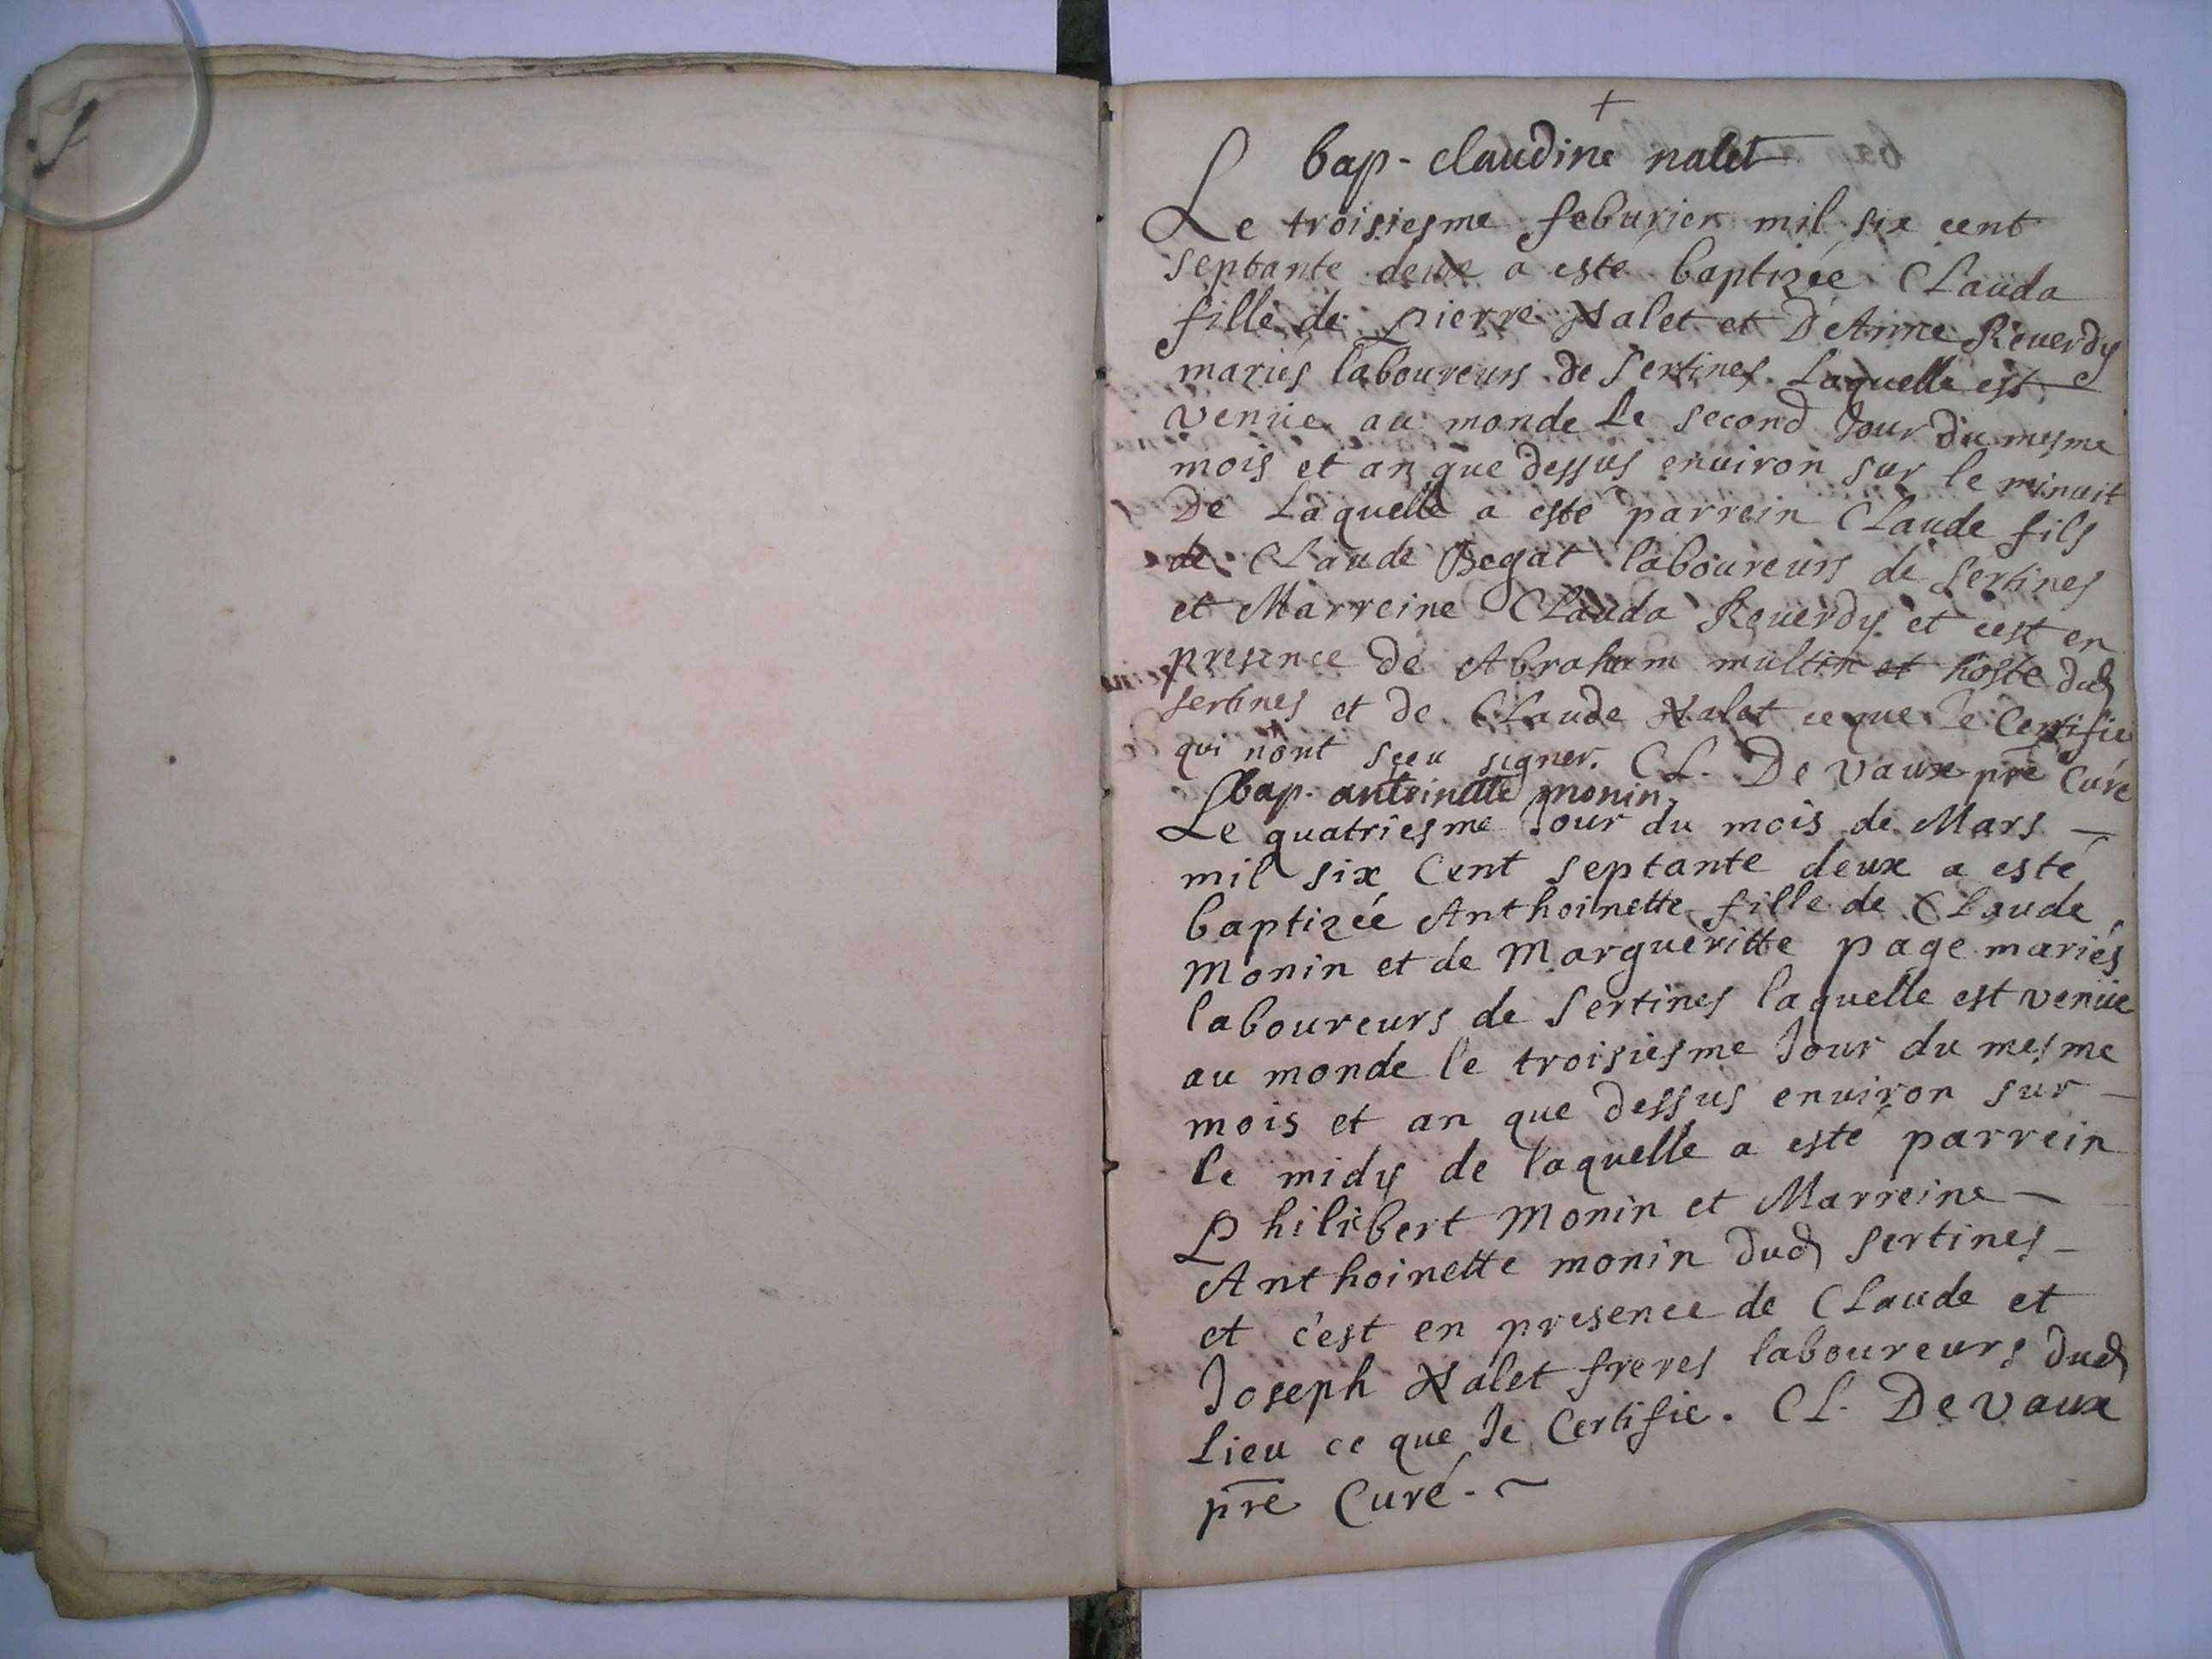 +
bap - claudine nalet
Le troisiesme feburier mil six cent
septante deux a esté baptizée CLauda
fille de pierre Nalet et D'Anne Reuerdy
mariés laboureurs de sertines. Laquelle est
venüe au monde Le second Jour du mesme
mois et an que dessus enuiron sur le minuit
De Laquelle a esté parrein CLaude fils
de CLaude Begat laboureurs de sertines
et Marreine CLauda Reuerdy et cest en
presence de Abraham multin et hoste dud
sertines et de CLaude Nalet ce que Je Certifie
qui nont sçeu signer. CL. De vaux pre Curé
bap. antoinette monin.
Le quatriesme Jour du mois de Mars —
mil six Cent septante deux a esté
baptizée Anthoinette fille de CLaude
Monin et de Margueritte page mariés
laboureurs de sertines laquelle est venüe
au monde le troisiesme Jour du mesme
mois et an que dessus enuiron sur —
le midy de laquelle a esté parrein
Philibert Monin et Marreine —
Anthoinette monin dud sertines —
et c'est en presence de CLaude et
Joseph Nalet freres laboureurs dud
Lieu ce que Je Certifie. CL. De vaux
pre Curé. ~